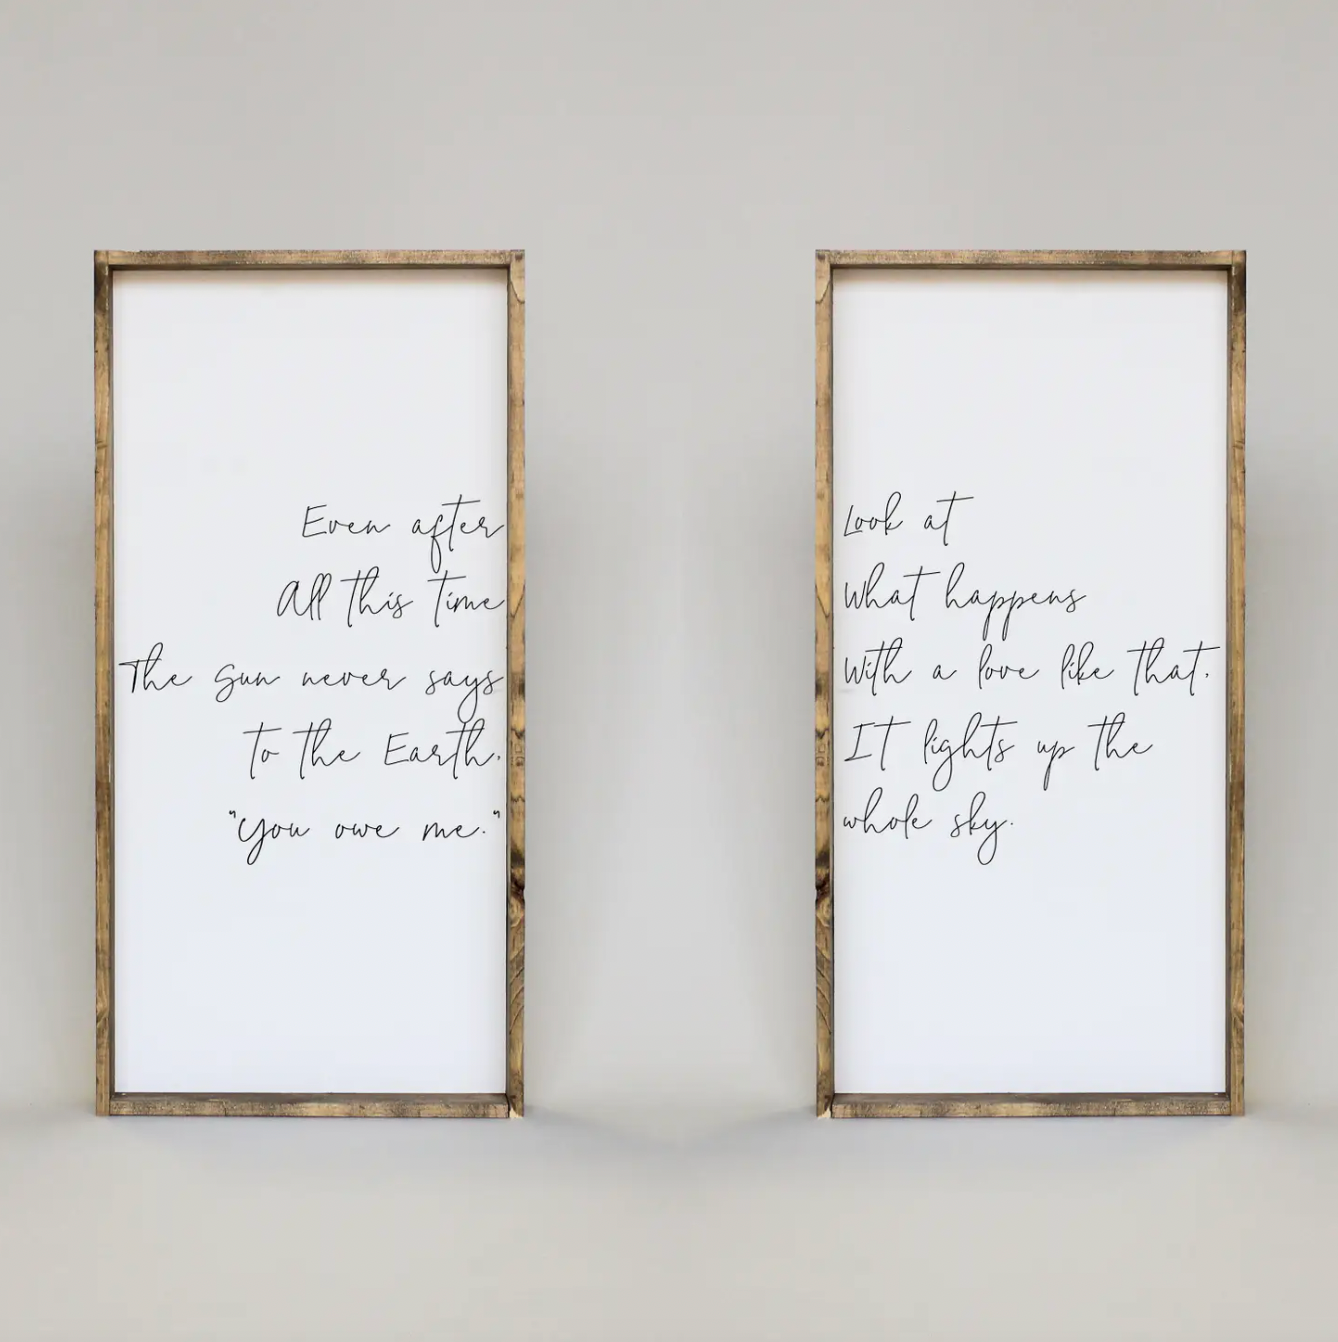 Even after
All this time
The Sun never says
to the Earth,
"You owe me."
Look at
What happens
With a love like that,
It lights up the
whole sky.